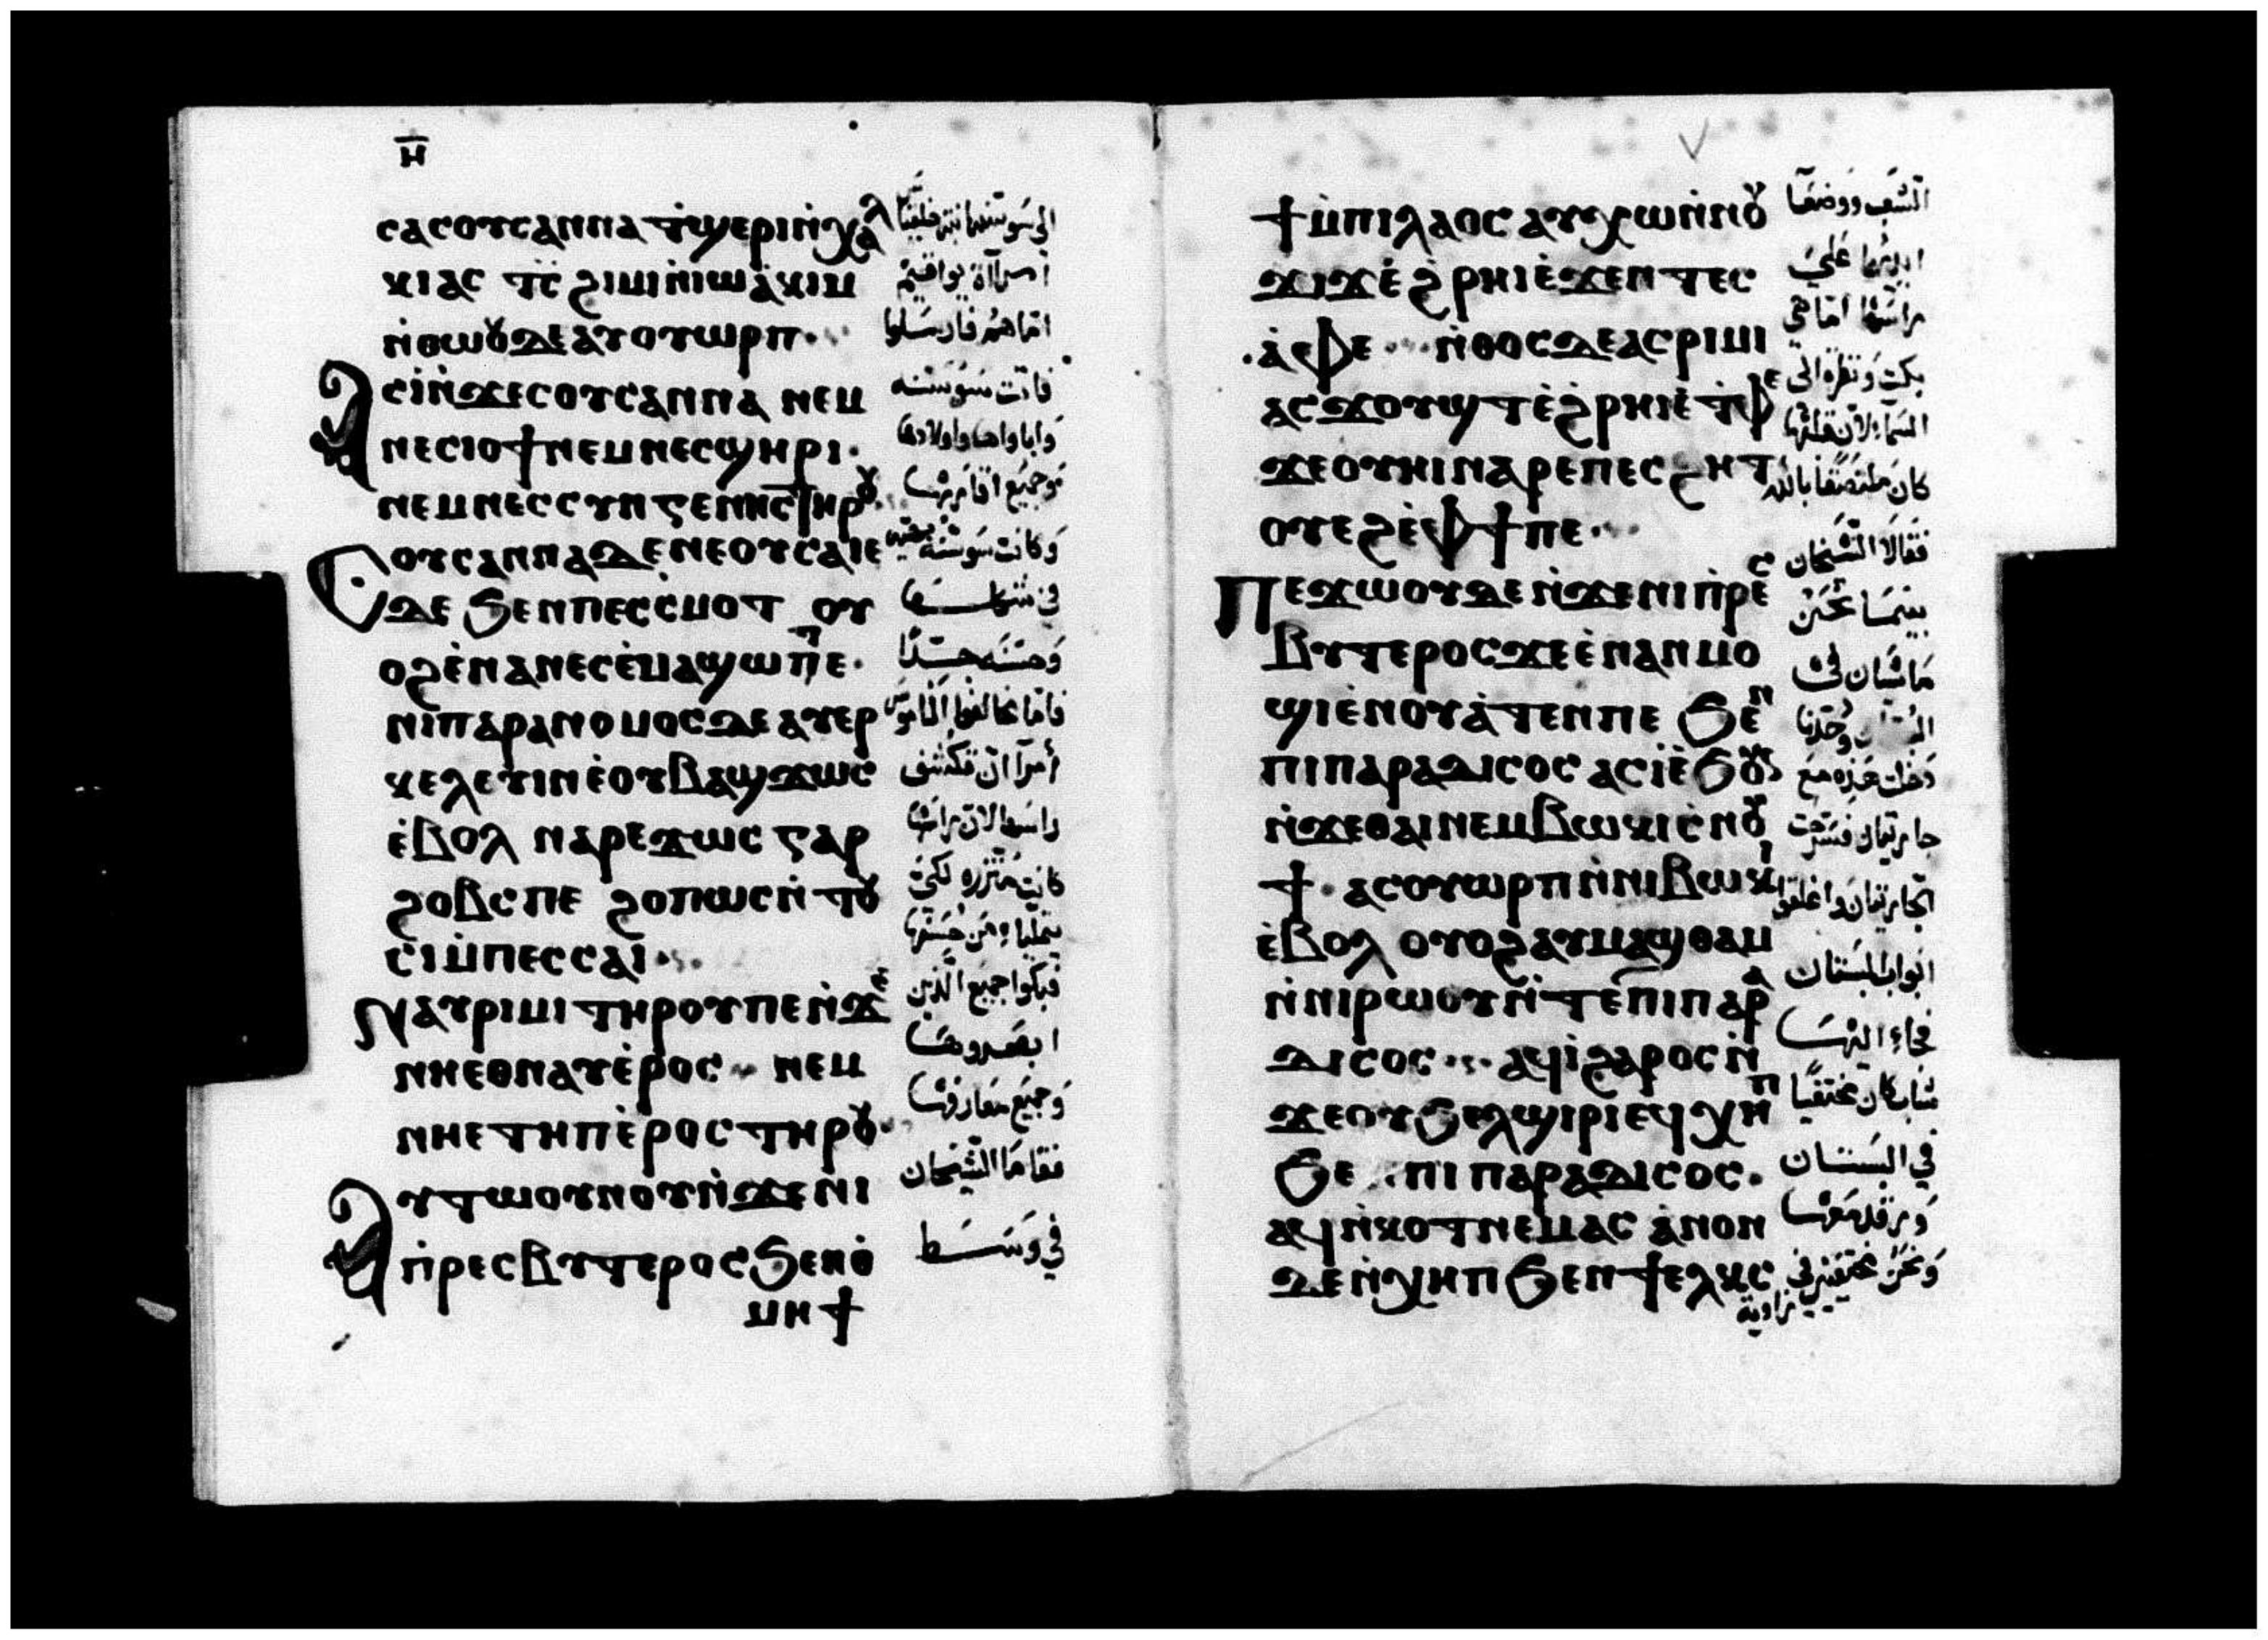 ⲏ̅
ⲥⲁⲥⲟⲩⲥⲁⲛⲛⲁ ϯϣⲉⲣⲓⲛ̀ⲭⲁⲗ
ⲕⲓⲁⲥ ⲧ̄ⲥ̄ϩⲓⲙⲓⲛ̀ⲓⲱⲁ̀ⲕⲓⲙ
ⲛ̀ⲑⲱⲟⲩⲇⲉⲁⲩⲟⲩⲱⲣⲡ
ⲁⲥⲓ̀ⲛ̀ϫⲉⲥⲟⲩⲥⲁⲛⲛⲁ ⲛⲉⲙ
ⲛⲉⲥⲓⲟϯⲛⲉⲙⲛⲉⲥϣⲏⲣⲓ
ⲛⲉⲙⲛⲉⲥⲥⲩⲛⲅⲉⲛⲏⲥⲧⲏⲣⲟⲩ
ⲥⲟⲩⲥⲁⲛⲛⲁⲇⲉⲛⲉⲟⲩⲥⲁⲓⲉ
ⲇⲉ ϧⲉⲛⲡⲉⲥⲥ̀ⲙⲟⲧ ⲟⲩ
ⲟϩⲉ̀ⲛⲁⲛⲉⲥⲉ̀ⲙⲁϣⲱⲡⲉ
ⲛⲓⲡⲁⲣⲁⲛⲟⲙⲟⲥⲇⲉⲁⲩⲉⲣ
ⲕⲉⲗⲉⲩⲓⲛⲉ̀ⲟⲩⲃⲁϣϫⲱⲥ
ⲉ̀ⲃⲟⲗ ⲛⲁⲣⲉϫⲱⲥ ⲅⲁⲣ
ϩⲟⲃⲥⲡⲉ ϩⲟⲡⲱⲥⲛ̀ⲧⲟⲩ
ⲥⲓⲙ̀ⲡⲉⲥⲥⲁⲓ
ⲛⲁⲩⲣⲓⲙⲓ ⲧⲏⲣⲟⲩⲡⲉⲛ̀ϫⲉ
ⲛⲏⲉⲑⲛⲁⲩⲉ̀ⲣⲟⲥ ⲛⲉⲙ
ⲛⲏⲉⲧⲏⲡⲉ̀ⲣⲟⲥⲧⲏⲣⲟⲩ
ⲁⲩⲧⲱⲟⲩⲛⲟⲩⲛ̀ϫⲉⲛⲓ
ⲡ̀ⲣⲉⲥⲃⲩⲧⲉⲣⲟⲥϧⲉⲛⲑ̀
ⲙⲏϯ
امرآة يواقيم
اما هم فارسلوا
فاتت سوسنه
واباواها واولادها
وجميع اقاربها
وكانت سوسنه
وحسنه جدًا
كانت متزره لكى
فبكوا جميع الذين
ابصروها
وجميع معارفها
فقاما الشيخان
في وسط
ϯⲙ̀ⲡⲓⲗⲁⲟⲥ ⲁⲩⲭⲱⲛ̀ⲛⲟⲩ
ϫⲓϫⲉ̀ϩ̀ⲣⲏⲓⲉ̀ϫⲉⲛ ⲧⲉⲥ
ⲁ̀ⲫⲉ ⲛ̀ⲑⲟⲥⲇⲉⲁⲥⲣⲓⲙⲓ
ⲁⲥϫⲟⲩϣⲧⲉ̀ϩ̀ⲣⲏⲓⲉ̀ⲧ̀ⲫⲉ
ϫⲉⲟⲩⲏⲓⲛⲁⲣⲉⲡⲉⲥϩⲏⲧ
ⲟⲩⲉϩⲉ̀ⲫϯⲡⲉ
ⲡⲉϫⲱⲟⲩⲇⲉⲛ̀ϫⲉⲛⲓⲡ̀ⲣⲉⲥ
ⲃⲩⲧⲉⲣⲟⲥϫⲉⲉ̀ⲛⲁⲛⲙⲟ
ϣⲓⲉ̀ⲛⲟⲩⲁ̀ⲧⲉⲛⲡⲉ ϧⲉⲛ
ⲡⲓⲡⲁⲣⲁⲇⲓⲥⲟⲥ ⲁⲥⲓ̀ⲉ̀ϧⲟⲩⲛ
ⲛ̀ϫⲉⲑⲁⲓⲛⲉⲙⲃⲱⲕⲓⲥ̀ⲛⲟⲩ
ϯ ⲁⲥⲟⲩⲱⲣⲡⲛ̀ⲛⲓⲃⲱⲕⲓ
ⲉ̀ⲃⲟⲗ ⲟⲩⲟϩⲁⲩⲙⲁϣⲑⲁⲙ
ⲛ̀ⲛⲓⲣⲱⲟⲩⲛ̀ⲧⲉⲡⲓⲡⲁⲣⲁ
ⲇⲓⲥⲟⲥ ⲁϥⲓ̀ϩⲁⲣⲟⲥⲛ̀
ϫⲉⲟⲩϧⲉⲗϣⲓⲣⲓⲉϥⲭⲏⲡ
ϧⲉ ⲡⲓⲡⲁⲣⲁⲇⲓⲥⲟⲥ
ⲁϥⲛ̀ⲕⲟⲧⲛⲉⲙⲁⲥ ⲁ̀ⲛⲟⲛ
ⲇⲉⲛ̀ⲭⲏⲡϧⲉⲛϯⲉⲗⲕⲥ
الشعب ووضعا
ايديهما على
راسها اما هي
بكت ونظرة الى
فقالا الشيخان
بينما نحن
ماشيان في
دخلت هذه مع
ابواب البستان
فجاء اليها
شاب كان مختفيًا
في البستان
ورقد معها
ونحن مختفين في
زاوية